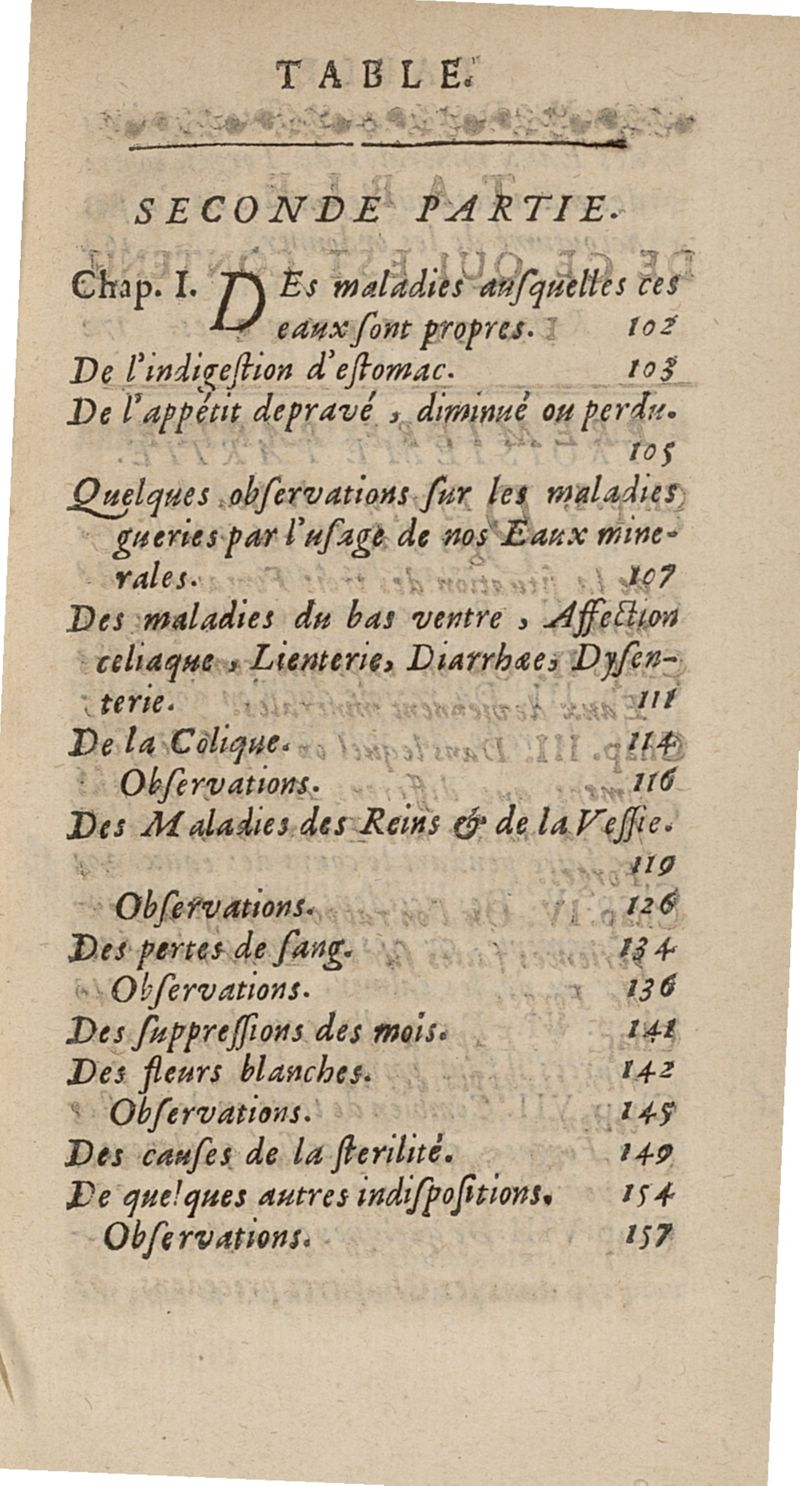 TABLE.
SECONDE PARTIE.
Chap. I. DEs maladies auſquelles ces
eaux ſont propres. 102
De l'indigeſtion d'eſtomac. 103
De l'appétit depravé, diminué ou perdu.
105
Quelques obſervations ſur les maladies
gueries par l'uſage de nos Eaux mine-
rales. 107
Des maladies du bas ventre, Affection
celiaque, Lienterie, Diarrhæe, Dyſen-
terie. 111
De la Colique. 114
Obſervations. 116
Des Maladies des Reins & de la Veſſie.
119
Obſervations. 126
Des pertes de ſang. 134
Obſervations. 136
Des ſuppreſſions des mois. 141
Des fleurs blanches. 142
Obſervations. 145
Des cauſes de la ſterilité. 149
De quelques autres indiſpoſitions. 154
Obſervations. 157